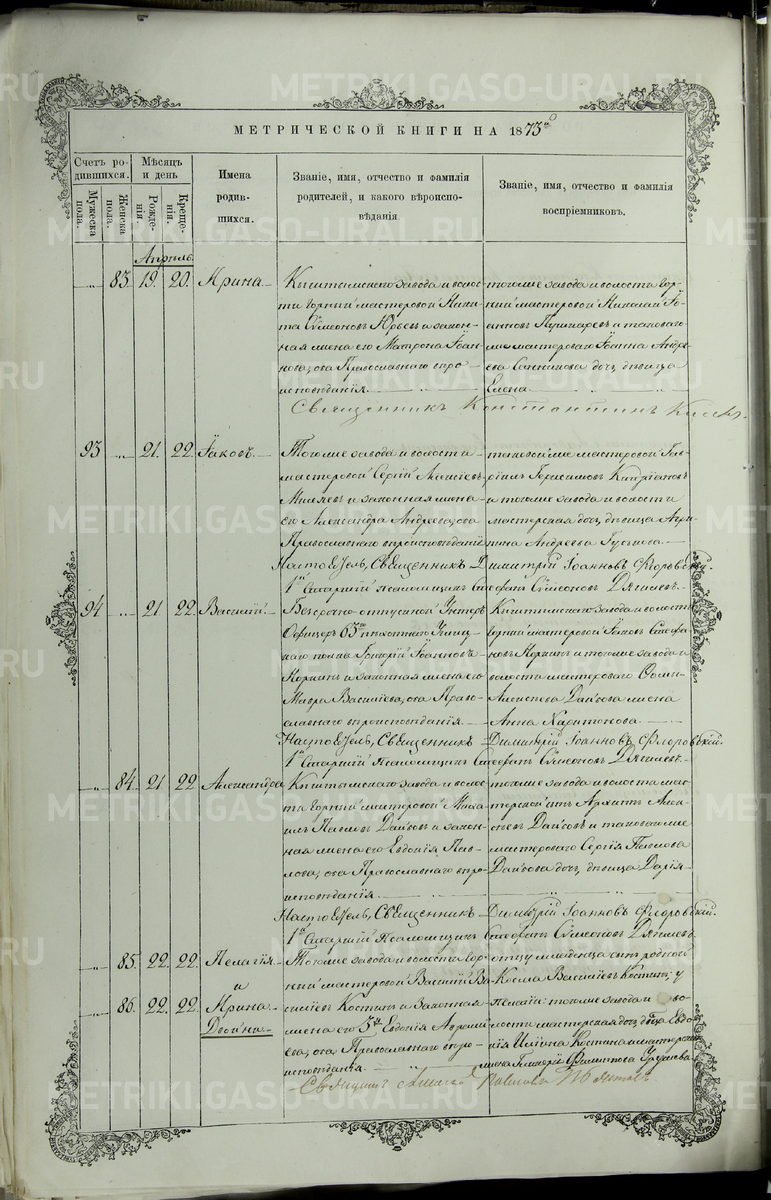 МЕТРИЧЕСКОЙ КНИГИ НА 1873й
Счетъ родившихся.
Мужеска пола.
Женска пола.
Мѣсяцъ и день
Рожденія.
Крещенія.
Имена родившихся.
Званіе, имя, отчество и фамилія родителей, и какого вѣроисповѣданія.
Званіе, имя, отчество и фамилія воспріемниковъ.
Апрѣль
83. 19. 20. Ирина
Кыштымскаго завода и волос-
ти горный мастеровой Ники-
та Сѵмеоновъ Юрьевъ и закон-
ная жена его Матрона Іоан-
нова; оба Православнаго вѣро-
исповѣданія.
тогоже завода и волости гор-
ный мастеровой Николай Іо-
анновъ Пушкаревъ и таковаго
же мастероваго Іоанна Андре-
ева дочь дѣвица
Елена.
Священникъ Константинъ
93 21. 22 Іаковъ.
Тогоже завода и волости
мастеровой Сергій Алексіевъ
и законная жена
его Александра Андреева; оба
Православнаго вѣроисповѣданія
таковойже мастеровой Гав-
ріилъ Герасимовъ Кипріановъ
и тогоже завода и волости
мастерская дочь дѣвица Агри-
пина Андреева
Настоятель, Священникъ Димитрій Іоанновъ Флоровскій.
1й старшій псаломщикъ Стефанъ Сѵмеоновъ Дягилевъ.
94 21 22. Василій.
Безсрочно-отпускной Унтеръ
Офицеръ 65го пѣхотнаго
наго полка Григорій Іоанновъ
Коркинъ и законная жена его
Мавра Васильева; оба Право-
славнаго вѣроисповѣданія.
Кыштымскаго завода и волости
горный мастеровой Іаковъ Стефа-
новъ Коркинъ и тогоже завода и
волости мастероваго Ѳомы
Алексѣева жена
Анна Харитонова.
Настоятель, Священникъ Димитрій Іоанновъ Флоровскій.
1й старшій псаломщикъ Стефанъ Сѵмеоновъ Дягилевъ.
84. 21 22 Александра
Кыштымскаго завода и волос-
ти горный мастеровой Миха-
илъ Павловъ и закон-
ная жена его Евдокія Пав-
лова; оба Православнаго вѣро-
исповѣданія.
тогоже завода и волости мас-
терской сынъ Архиппъ Алек-
сѣевъ и таковагоже
мастероваго Сергія Павлова
дочь, дѣвица Дарія.
Настоятель, Священникъ Димитрій Іоанновъ Флоровскій.
1й старшій псаломщикъ Стефанъ Сѵмеоновъ Дягилевъ.
85. 22. 22. Пелагія
и
86. 22. 22. Ирина
Двойни.
Тогоже завода и волости гор-
ный мастеровой Василій Ва-
сильевъ Костинъ и Законная
жена его 3я Евдокія
ева; оба Православнаго вѣро-
исповѣданія.
отцу младенца сынъ родной
Косма Василіевъ Костинъ; у
Пелагіи: тогоже завода и во-
лости мастерская дочь, дѣвица Евдо-
кія Ильина Костина и мастерская
жена Гликерія Филиппова
METRIKI.GASO-URAL.RU